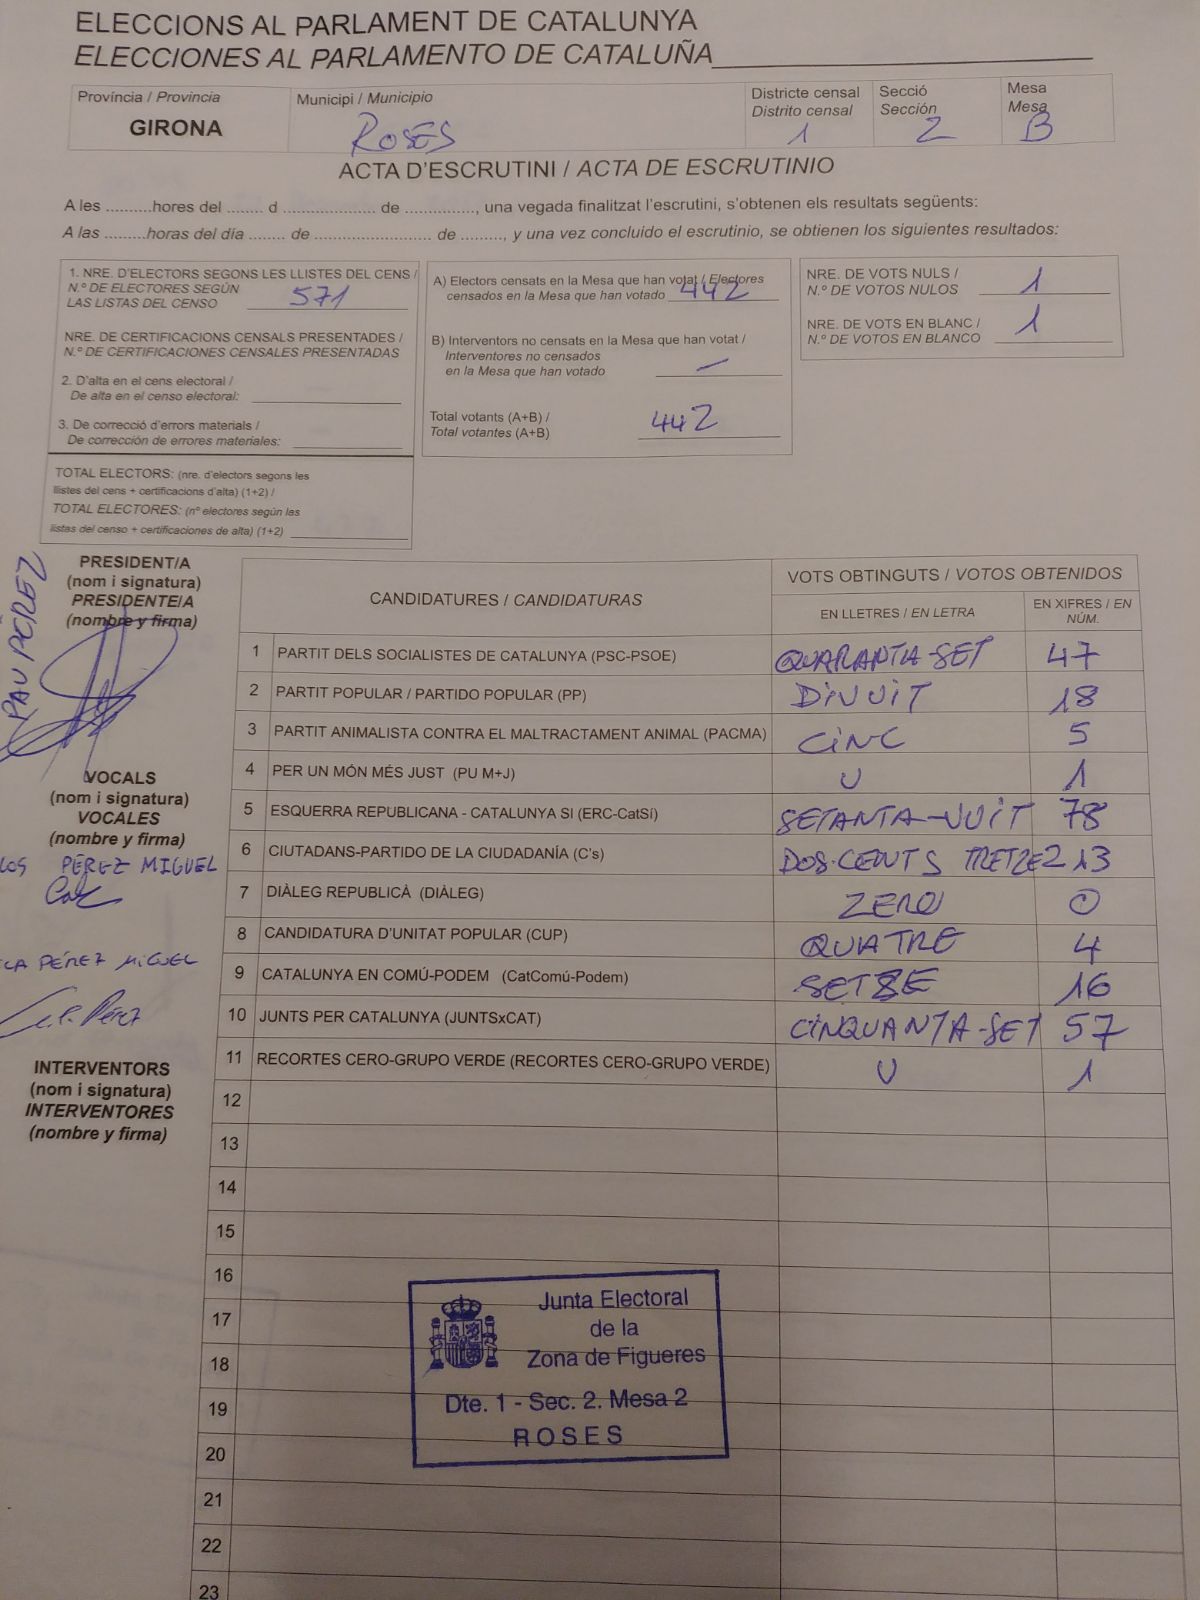 ELECCIONS AL PARLAMENT DE CATALUNYA
ELECCIONES AL PARLAMENTO DE CATALUÑA
Província / Provincia
GIRONA
Municipi / Municipio
ROSES
Districte censal
Distrito censal
1
Secció
Sección
2
Mesa
Mesa
B
ACTA D'ESCRUTINI / ACTA DE ESCRUTINIO
A les ..........hores del ........ d .................... de ..............., una vegada finalitzat l'escrutini, s'obtenen els resultats següents:
A las .........horas del día ........ de ......................... de ........., y una vez concluído el escrutinio, se obtienen los siguientes resultados:
1. NRE. D'ELECTORS SEGONS LES LLISTES DEL CENS /
N.º DE ELECTORES SEGÚN
LAS LISTAS DEL CENSO 571
NRE. DE CERTIFICACIONS CENSALS PRESENTADES /
N.º DE CERTIFICACIONES CENSALES PRESENTADAS
2. D'alta en el cens electoral /
De alta en el censo electoral:
3. De correcció d'errors materials /
De corrección de errores materiales:
TOTAL ELECTORS: (nre. d'electors segons les
llistes del cens + certificacions d'alta) (1+2) /
TOTAL ELECTORES: (nº electores según las
listas del censo + certificaciones de alta) (1+2)
A) Electors censats en la Mesa que han votat / Electores
censados en la Mesa que han votado 442
B) Interventors no censats en la Mesa que han votat /
Interventores no censados
en la Mesa que han votado —
Total votants (A+B) /
Total votantes (A+B) 442
NRE. DE VOTS NULS /
N.º DE VOTOS NULOS 1
NRE. DE VOTS EN BLANC /
N.º DE VOTOS EN BLANCO 1
PRESIDENT/A
(nom i signatura)
PRESIDENTE/A
(nombre y firma)
PAU PÉREZ
VOCALS
(nom i signatura)
VOCALES
(nombre y firma)
LOS PÉREZ MIGUEL
LA PÉREZ MIGUEL
INTERVENTORS
(nom i signatura)
INTERVENTORES
(nombre y firma)
CANDIDATURES / CANDIDATURAS
VOTS OBTINGUTS / VOTOS OBTENIDOS
EN LLETRES / EN LETRA
EN XIFRES / EN
NÚM.
1 PARTIT DELS SOCIALISTES DE CATALUNYA (PSC-PSOE) QUARANTA-SET 47
2 PARTIT POPULAR / PARTIDO POPULAR (PP) DIVUIT 18
3 PARTIT ANIMALISTA CONTRA EL MALTRACTAMENT ANIMAL (PACMA) CINC 5
4 PER UN MÓN MÉS JUST (PU M+J) U 1
5 ESQUERRA REPUBLICANA - CATALUNYA SI (ERC-CatSí) SETANTA-VUIT 78
6 CIUTADANS-PARTIDO DE LA CIUDADANÍA (C's) DOS-CENTS TRETZE 213
7 DIÀLEG REPUBLICÀ (DIÀLEG) ZERO 0
8 CANDIDATURA D'UNITAT POPULAR (CUP) QUATRE 4
9 CATALUNYA EN COMÚ-PODEM (CatComú-Podem) SETZE 16
10 JUNTS PER CATALUNYA (JUNTSxCAT) CINQUANTA-SET 57
11 RECORTES CERO-GRUPO VERDE (RECORTES CERO-GRUPO VERDE) U 1
12
13
14
15
16
17
18
19
20
21
22
23
Junta Electoral
de la
Zona de Figueres
Dte. 1 - Sec. 2. Mesa 2
ROSES